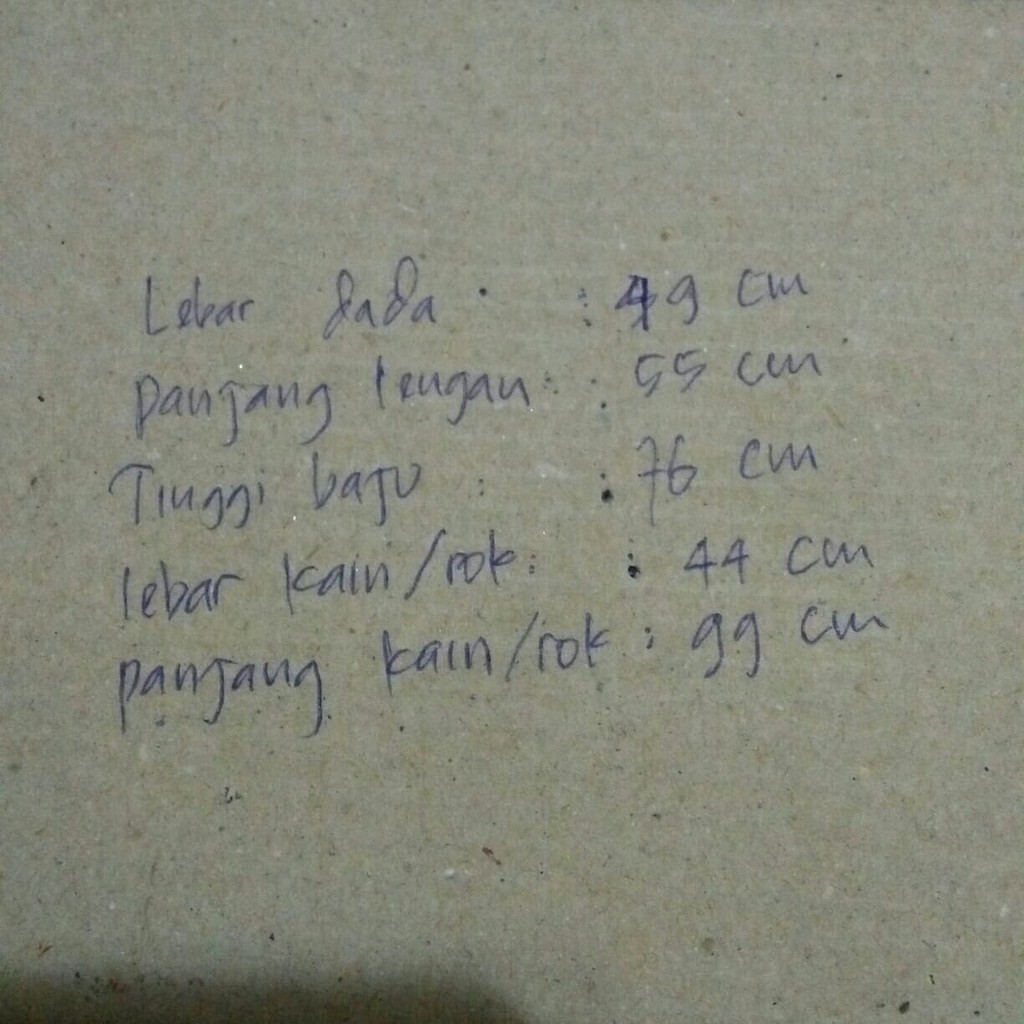 Lebar dada : 49 cm
panjang lengan : 55 cm
Tinggi baju : 76 cm
lebar kain/rok : 44 cm
panjang kain/rok : 99 cm